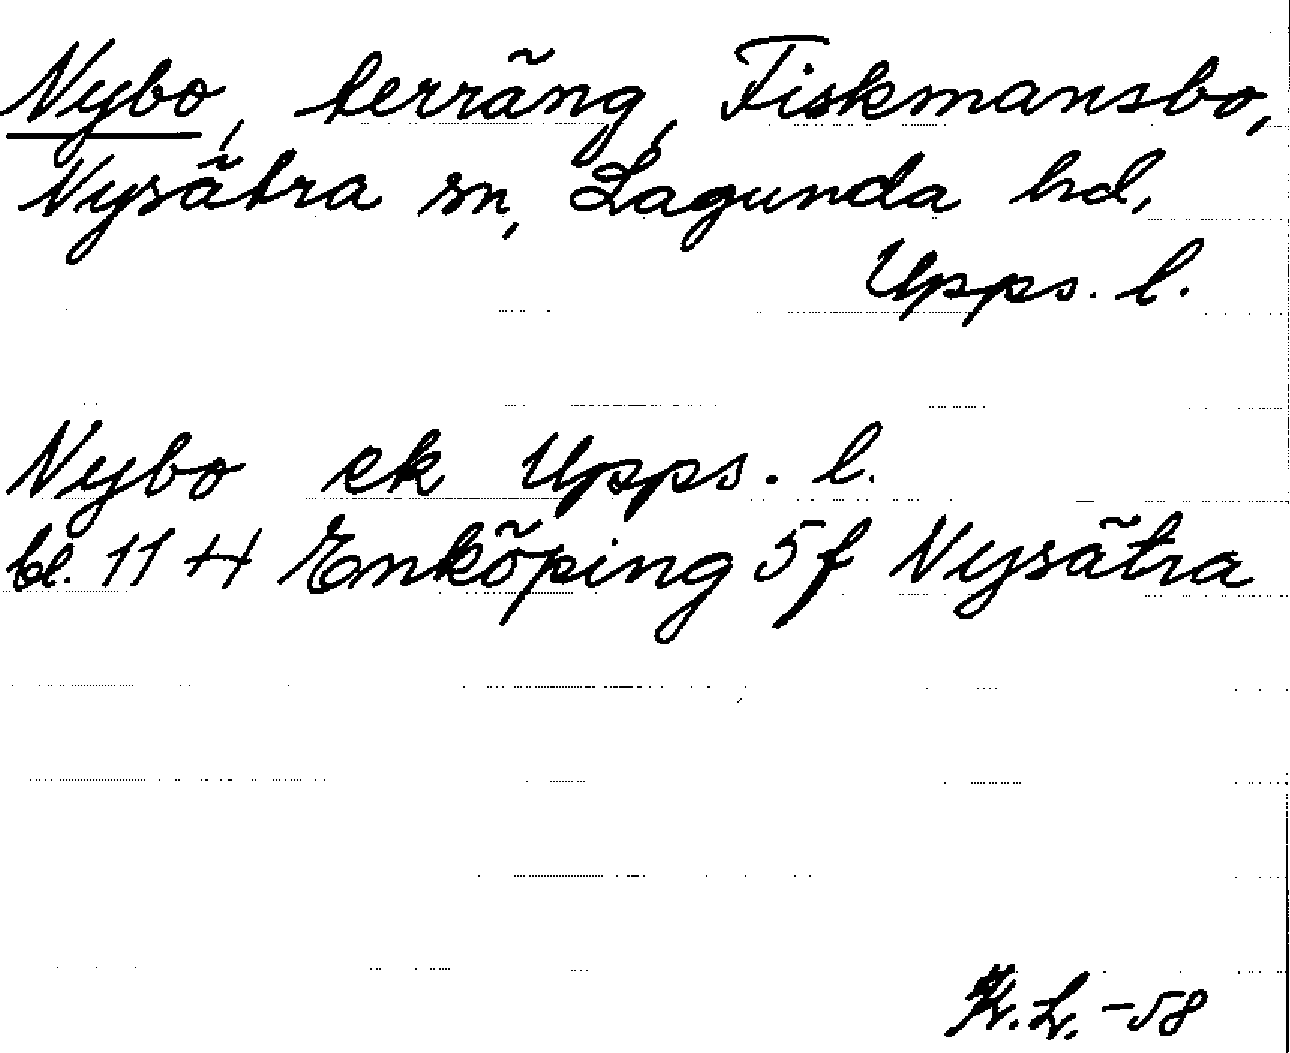 Nybo, terräng, Fiskmansbo,
Nysätra sn, Lagunda hd,
Upps. l.
Nybo ek Upps. l.
bl. 11 H Enköping 5 f Nysätra
K. L. -58